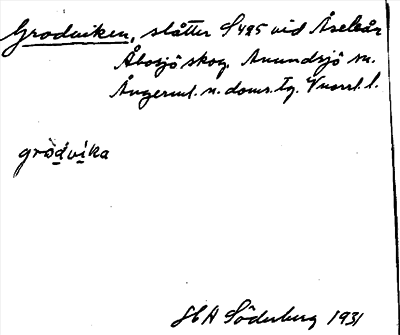 Grodviken, slåtter S 495 vid Åseleån
Åbosjö skog. Anundsjö sn.
Ångerml. n. doms. tg. Vnorrl. l.
grödvika
S H A Söderberg 1931